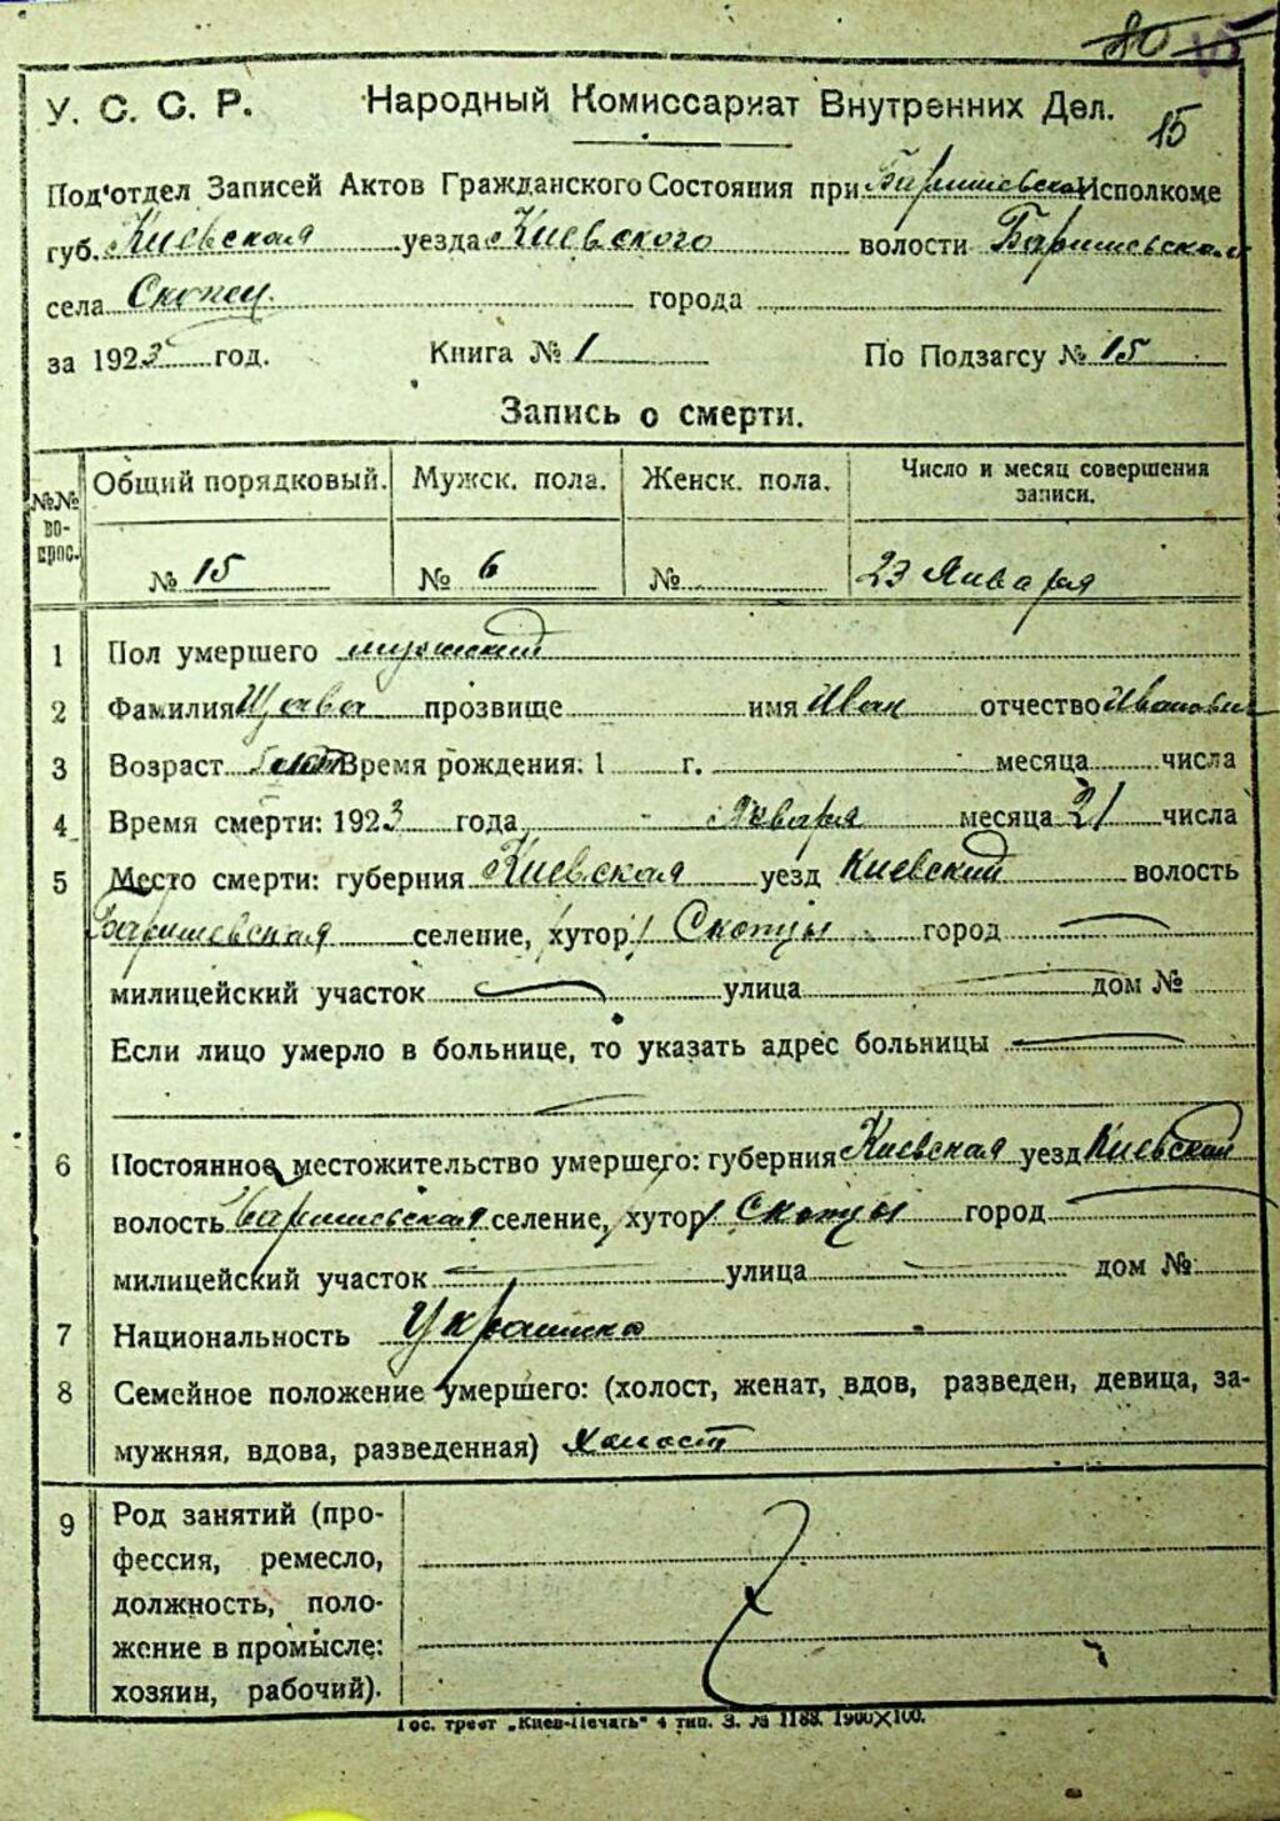 15
У. С. С. Р. Народный Комиссариат Внутренних Дел.
15
Под'отдел Записей Актов Гражданского Состояния при Баришевском Исполкоме
губ. Киевская уезда Киевского волости Баришевская
села Скопец. города
за 1923 год. Книга № 1 По Подзагсу № 15
Запись о смерти.
№№ вопрос. Общий порядковый. Мужск. пола. Женск. пола. Число и месяц совершения записи.
№ 15 № 6 № 23 Января
1 Пол умершего мужский
2 Фамилия прозвище имя Иван отчество Иванович
3 Возраст Время рождения: 1 г. месяца числа
4 Время смерти: 1923 года Января месяца 21 числа
5 Место смерти: губерния Киевская уезд Киевский волость
Баришевская селение, хутор Скопцы город
милицейский участок улица дом №
Если лицо умерло в больнице, то указать адрес больницы
6 Постоянное местожительство умершего: губерния Киевская уезд Киевский
волость Баришевская селение, хутор Скопцы город
милицейский участок улица дом №
7 Национальность
8 Семейное положение умершего: (холост, женат, вдов, разведен, девица, за-
мужняя, вдова, разведенная) холост
9 Род занятий (про-
фессия, ремесло,
должность, поло-
жение в промысле:
хозяин, рабочий).
Гос. трест „Киев-Печать" 4 тип. З. № 1188. 1900×100.